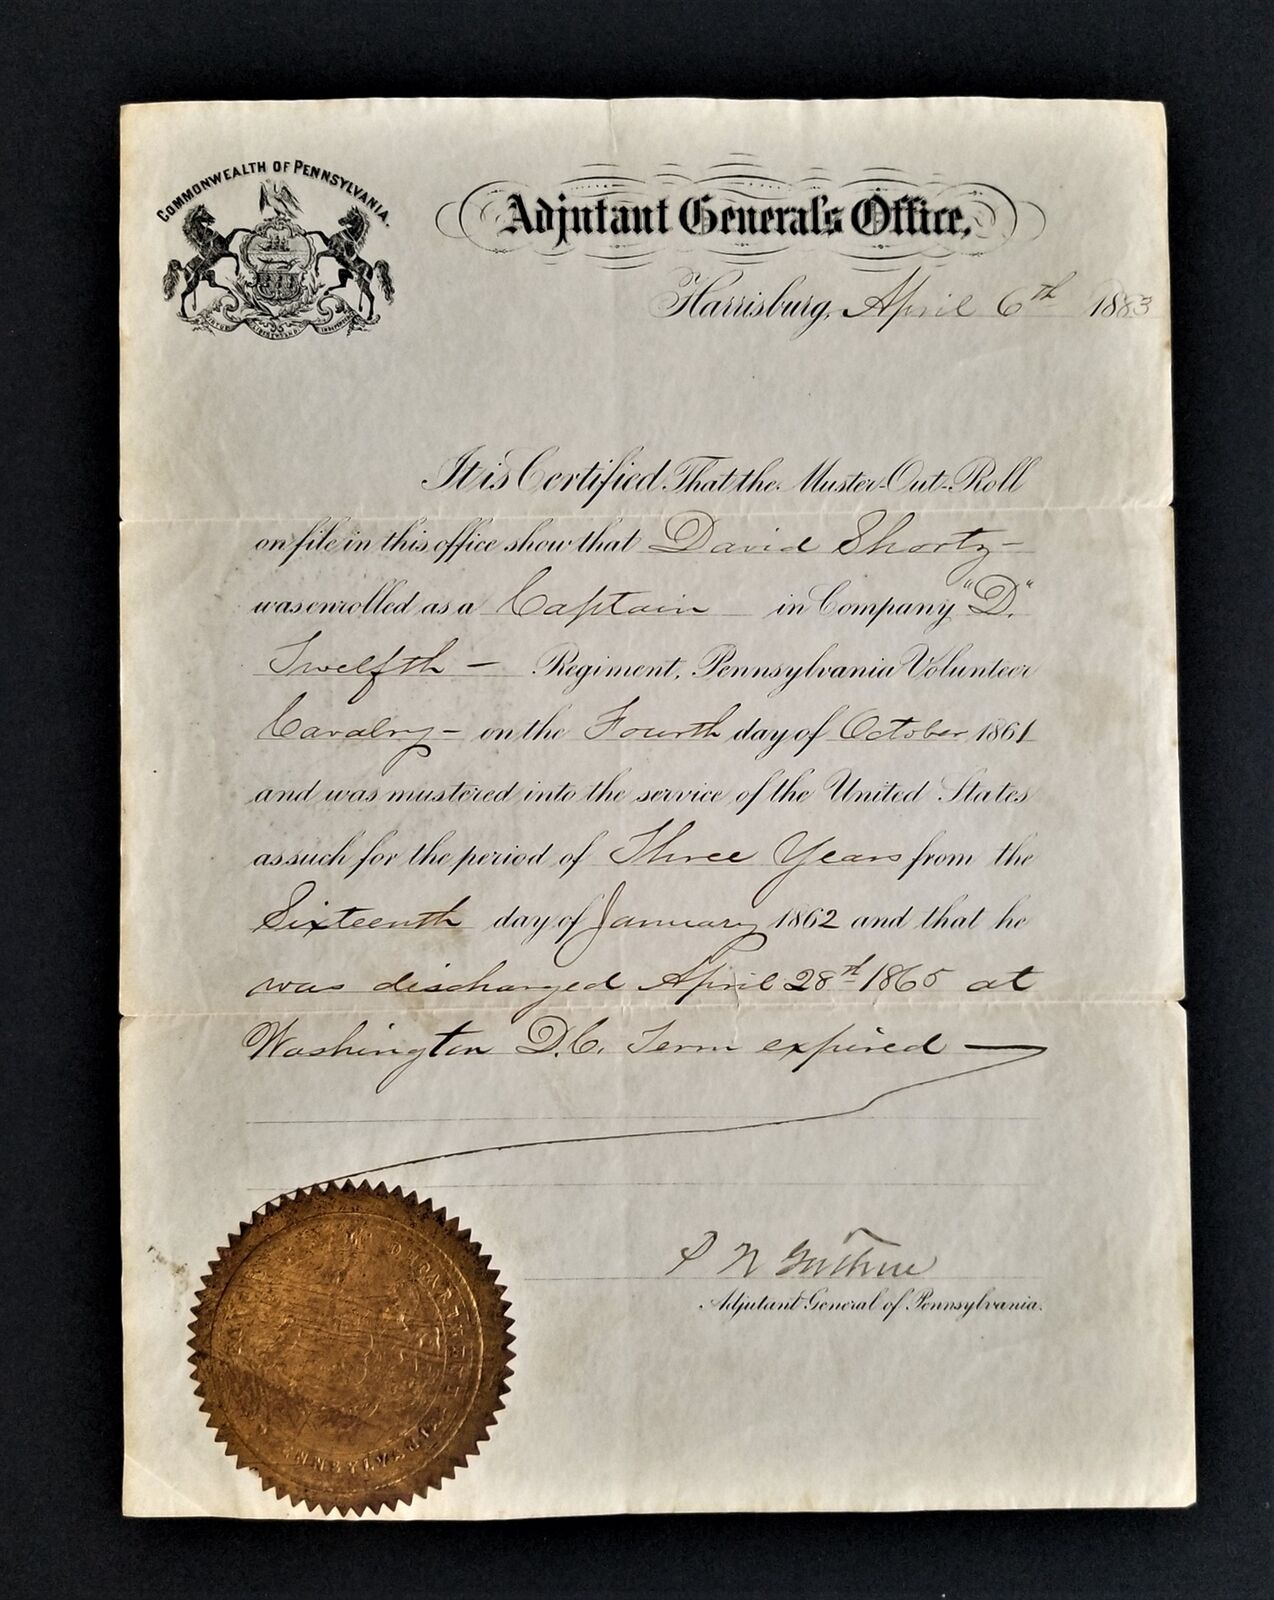 COMMONWEALTH OF PENNSYLVANIA.
Adjutant General's Office,
Harrisburg, April 6th 1883
It is Certified That the Muster-Out-Roll
on file in this office show that David Shortz
was enrolled as a Captain in Company "D."
Twelfth - Regiment, Pennsylvania Volunteer
Cavalry - on the Fourth day of October 1861
and was mustered into the service of the United States
as such for the period of Three Years from the
Sixteenth day of January 1862 and that he
was discharged April 28th 1865 at
Washington D.C. Term expired
P N Guthrie
Adjutant General of Pennsylvania.